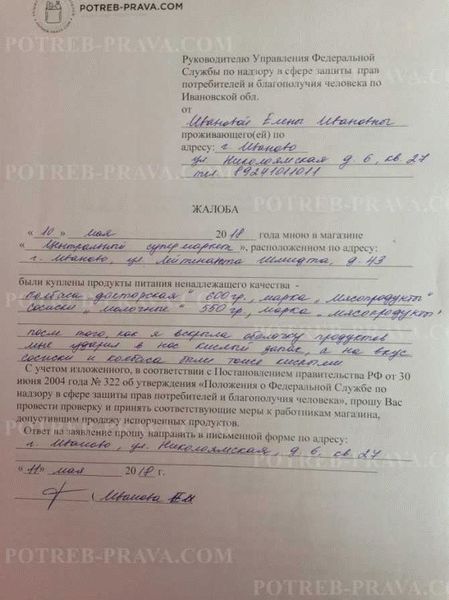 POTREB-PRAVA.COM
Руководителю Управления Федеральной
Службы по надзору в сфере защиты прав
потребителей и благополучия человека по
Ивановской обл.
от
Ивановой Елены Ивановны
проживающего(ей) по
адресу: г Иваново
ул Николоямская д. 6, кв. 27
тел 89241011011
ЖАЛОБА
« 10 » мая 2018 года мною в магазине
« Центральный супермаркет », расположенном по адресу:
г. Иваново, ул. Лейтенанта Шмидта, д. 43
были куплены продукты питания ненадлежащего качества -
колбаса „докторская" 600 гр, марка „Мясопродукты"
сосиски „молочные" 550 гр, марка „Мясопродукты"
после того, как я вскрыла оболочку продуктов
мне ударил в нос кислый запах, а на вкус
сосиски и колбаса были тоже кислыми
С учетом изложенного, в соответствии с Постановлением правительства РФ от 30
июня 2004 года № 322 об утверждении «Положения о Федеральной Службе по
надзору в сфере защиты прав потребителей и благополучия человека», прошу Вас
провести проверку и принять соответствующие меры к работникам магазина,
допустившим продажу испорченных продуктов.
Ответ на заявление прошу направить в письменной форме по адресу:
г. Иваново, ул. Николоямская, д. 6, кв. 27
« 11 » мая 2018 г.
( Иванова